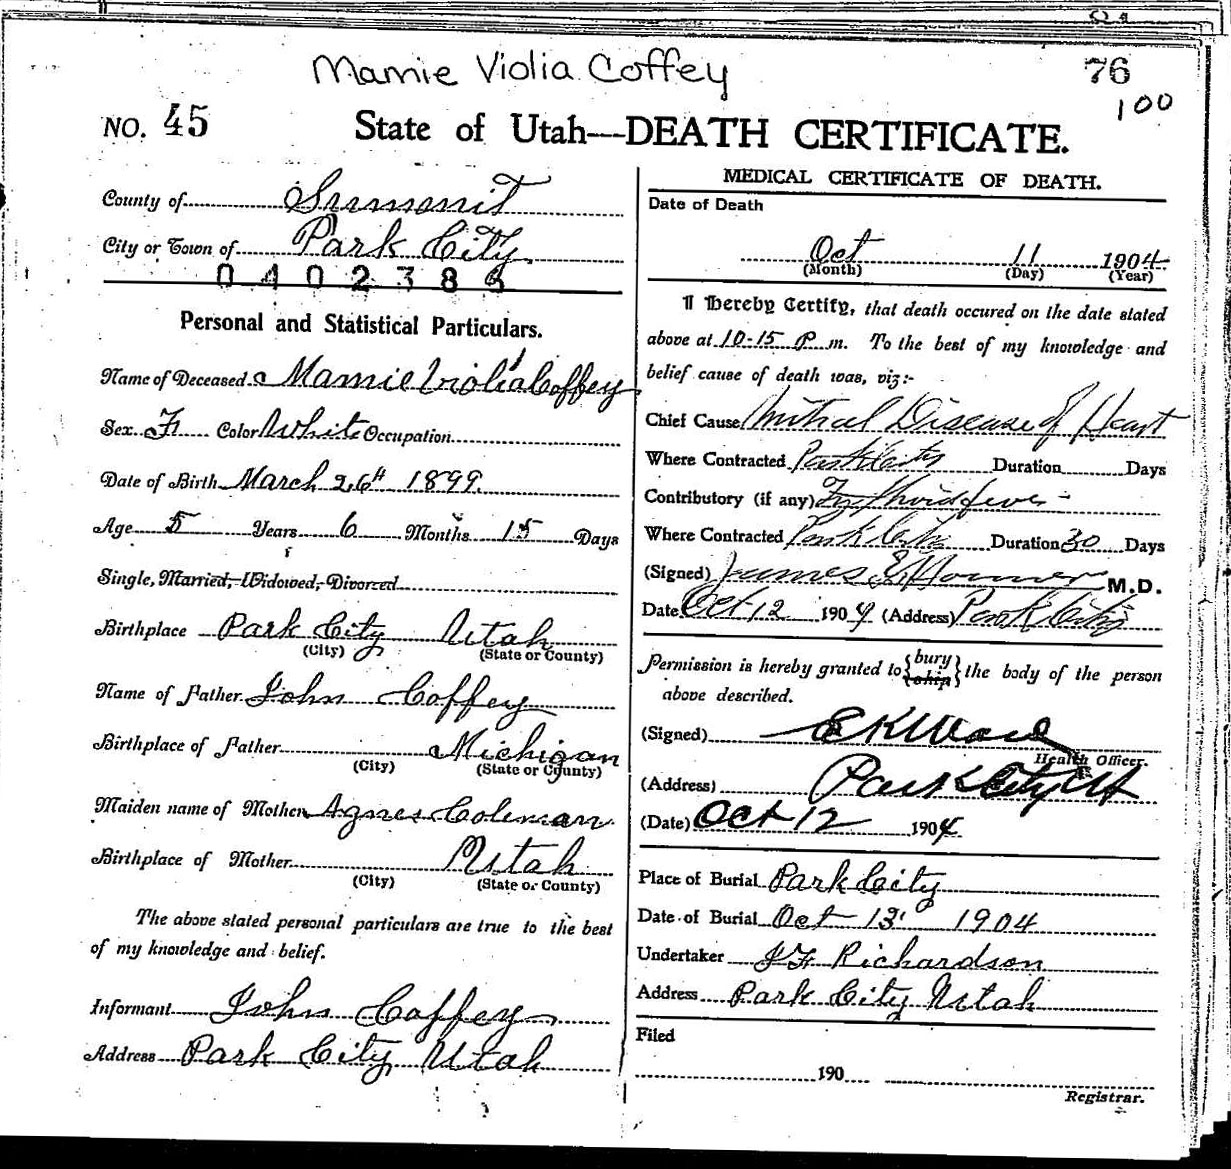 Mamie Violia Coffey
76
100
NO. 45
State of Utah—DEATH CERTIFICATE.
County of Summit
City or Town of Park City
0402386
Personal and Statistical Particulars.
Name of Deceased Mamie Violia Coffey
Sex F Color White Occupation
Date of Birth March 26th 1899
Age 5 Years 6 Months 15 Days
Single, Married, Widowed, Divorced
Birthplace Park City Utah
(City) (State or County)
Name of Father John Coffey
Birthplace of Father Michigan
(City) (State or County)
Maiden name of Mother Agnes Coleman
Birthplace of Mother Utah
(City) (State or County)
The above stated personal particulars are true to the best
of my knowledge and belief.
Informant John Coffey
Address Park City Utah
MEDICAL CERTIFICATE OF DEATH.
Date of Death
Oct 11 1904
(Month) (Day) (Year)
I Hereby Certify, that death occured on the date stated
above at 10-15 P m. To the best of my knowledge and
belief cause of death was, viz:-
Chief Cause Mitral Disease of Heart
Where Contracted Park City Duration Days
Contributory (if any) Typhoid fever
Where Contracted Park City Duration 30 Days
(Signed) James M.D.
Date Oct 12 1904 (Address) Park City
Permission is hereby granted to {bury ship} the body of the person
above described.
(Signed) E K Ward
Health Officer.
(Address) Park City Ut
(Date) Oct 12 1904
Place of Burial Park City
Date of Burial Oct 13 1904
Undertaker Richardson
Address Park City Utah
Filed
190
Registrar.